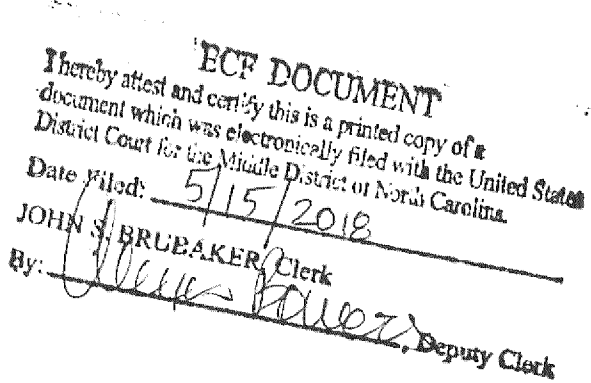 ECF DOCUMENT
I hereby attest and certify this is a printed copy of a
document which was electronically filed with the United States
District Court for the Middle District of North Carolina.
Date Filed: 5/15/2018
JOHN S. BRUBAKER, Clerk
By: , Deputy Clerk